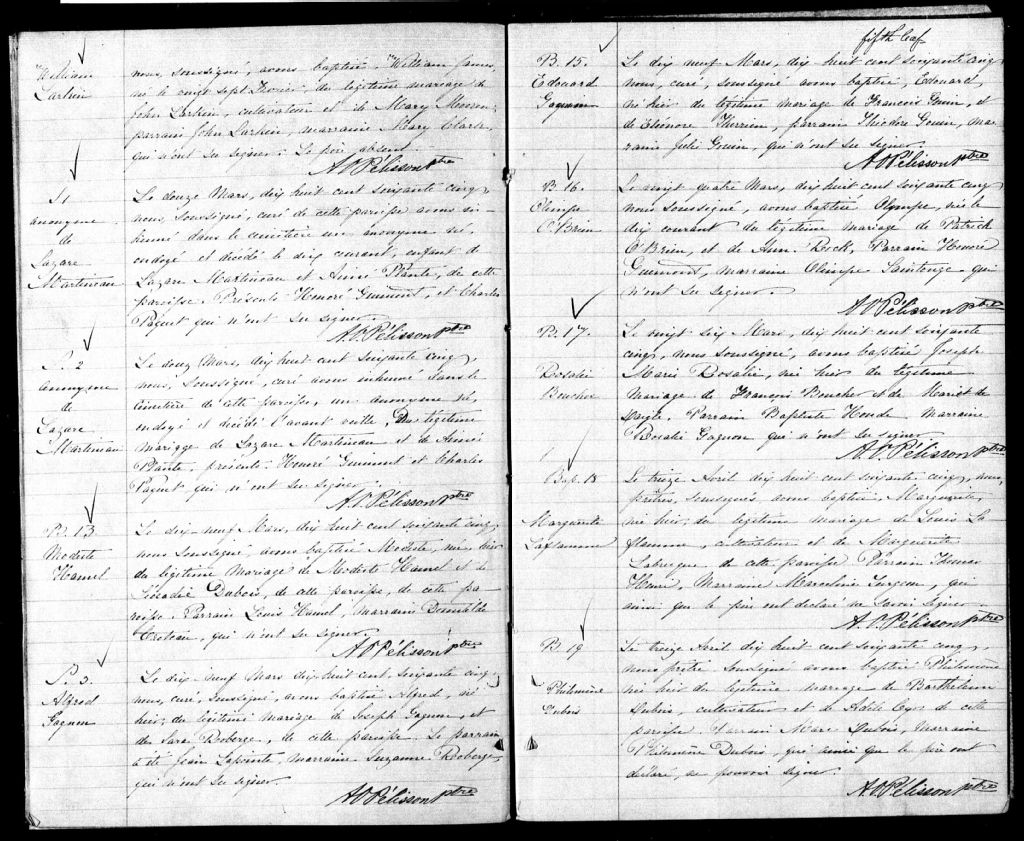 William
Larkin
nous, soussigné, avons baptisé William James,
né le vingt sept Février, du légitime mariage de
John Larkin, cultivateur et de Mary
parrain John Larkin, marraine Mary Clark,
qui n'ont su signer. Le père absent.
A. O Pélisson ptre
S. 1
anonyme
de
Lazare
Martineau
Le douze Mars, dix huit cent soixante cinq,
nous, soussigné, curé de cette paroisse avons in-
humé dans le cimetière un anonyme né,
ondoyé et décédé le dix courant, enfant de
Lazare Martineau et Aimée Plante, de cette
paroisse. Présents Honoré Guimont, et Charles
Paquet qui n'ont su signer.
A. O. Pélisson ptre
S. 2
anonyme
de
Lazare
Martineau
Le douze Mars, dix huit cent soixante cinq,
nous, soussigné, curé avons inhumé dans le
cimetière de cette paroisse, un anonyme né,
ondoyé et décédé l'avant veille, Du légitime
mariage de Lazare Martineau et de Aimée
Plante, présents Honoré Guimont et Charles
Paquet qui n'ont su signer.
A. O Pélisson ptre
B. 13
Modeste
Hamel
Le dix neuf Mars, dix huit cent soixante cinq,
nous soussigné, avons baptisé Modeste, née hier
du légitime mariage de Modeste Hamel et de
Léocadie Dubois, de cette paroisse, de cette pa-
roisse. Parrain Louis Hamel, marraine
Croteau, qui n'ont su signer.
A O Pélisson ptre
Alfred
Gagnon
Le dix neuf Mars dix huit cent, soixante cinq,
nous, curé, soussigné, avons baptisé Alfred, né
hier, du légitime mariage de Joseph Gagnon, et
de Sara Roberge, de cette paroisse. Le parrain
a été Jean Lapointe, marraine Suzanne Roberge,
qui n'ont su signer
A O Pélisson ptre
fifth leaf
B. 15.
Edouard
Le dix neuf Mars, dix huit cent soixante cinq,
nous, curé, soussigné avons baptisé, Edouard,
né hier du légitime mariage de Francois Gouin, et
de Eléonore Therrien, parrain Théodore Gouin, mar
raine Julie Gouin, qui n'ont su signer
A. O Pélisson ptre
B. 16.
Olimpe
O'Brien
Le vingt quatre Mars, dix huit cent soixante cinq
nous soussigné, avons baptisé Olympe, née le
dix courant du légitime mariage de Patrick
O'Brien, et de Ann. Rock, Parrain Honoré
Guimont, marraine Olimpe Saintonge qui
n'ont su signer.
A O Pélisson ptre
B. 17.
Rosalie
Boucher
Le vingt six Mars, dix huit cent soixante
cinq, nous soussigné, avons baptisé Joseph
Marie Rosalie, née hier du légitime
mariage de François Boucher et de Mariet
Daigle. Parrain Baptiste Houde Marraine
Rosalie Gagnon qui n'ont su signer
A. O. Pélisson ptre
Bap. 18
Marguerite
Laflamme
Le treize Avril dix huit cent soixante cinq, nous,
prêtre, soussigné avons baptisé Marguerite,
née hier, du légitime mariage de Louis La
flamme, cultivateur et de Marguerite
Labrecque de cette paroisse Parrain Thomas
Henri, Marraine Marceline Turgeon, qui
ainsi que le père ont déclaré ne savoir signer.
A. O. Pélisson ptre
B. 19
Philomène
Dubois
Le treize Avril dix huit cent soixante cinq,
nous prêtre soussigné avons baptisé Philomène
née hier du légitime mariage de Barthelemi
Dubois, cultivateur et de Adèle Cyr de cette
paroisse Parrain Marc Dubois, Marraine
Philomène Dubois, qui ainsi que le père ont
déclaré, ne pouvoir signer.
A. O Pélisson ptre